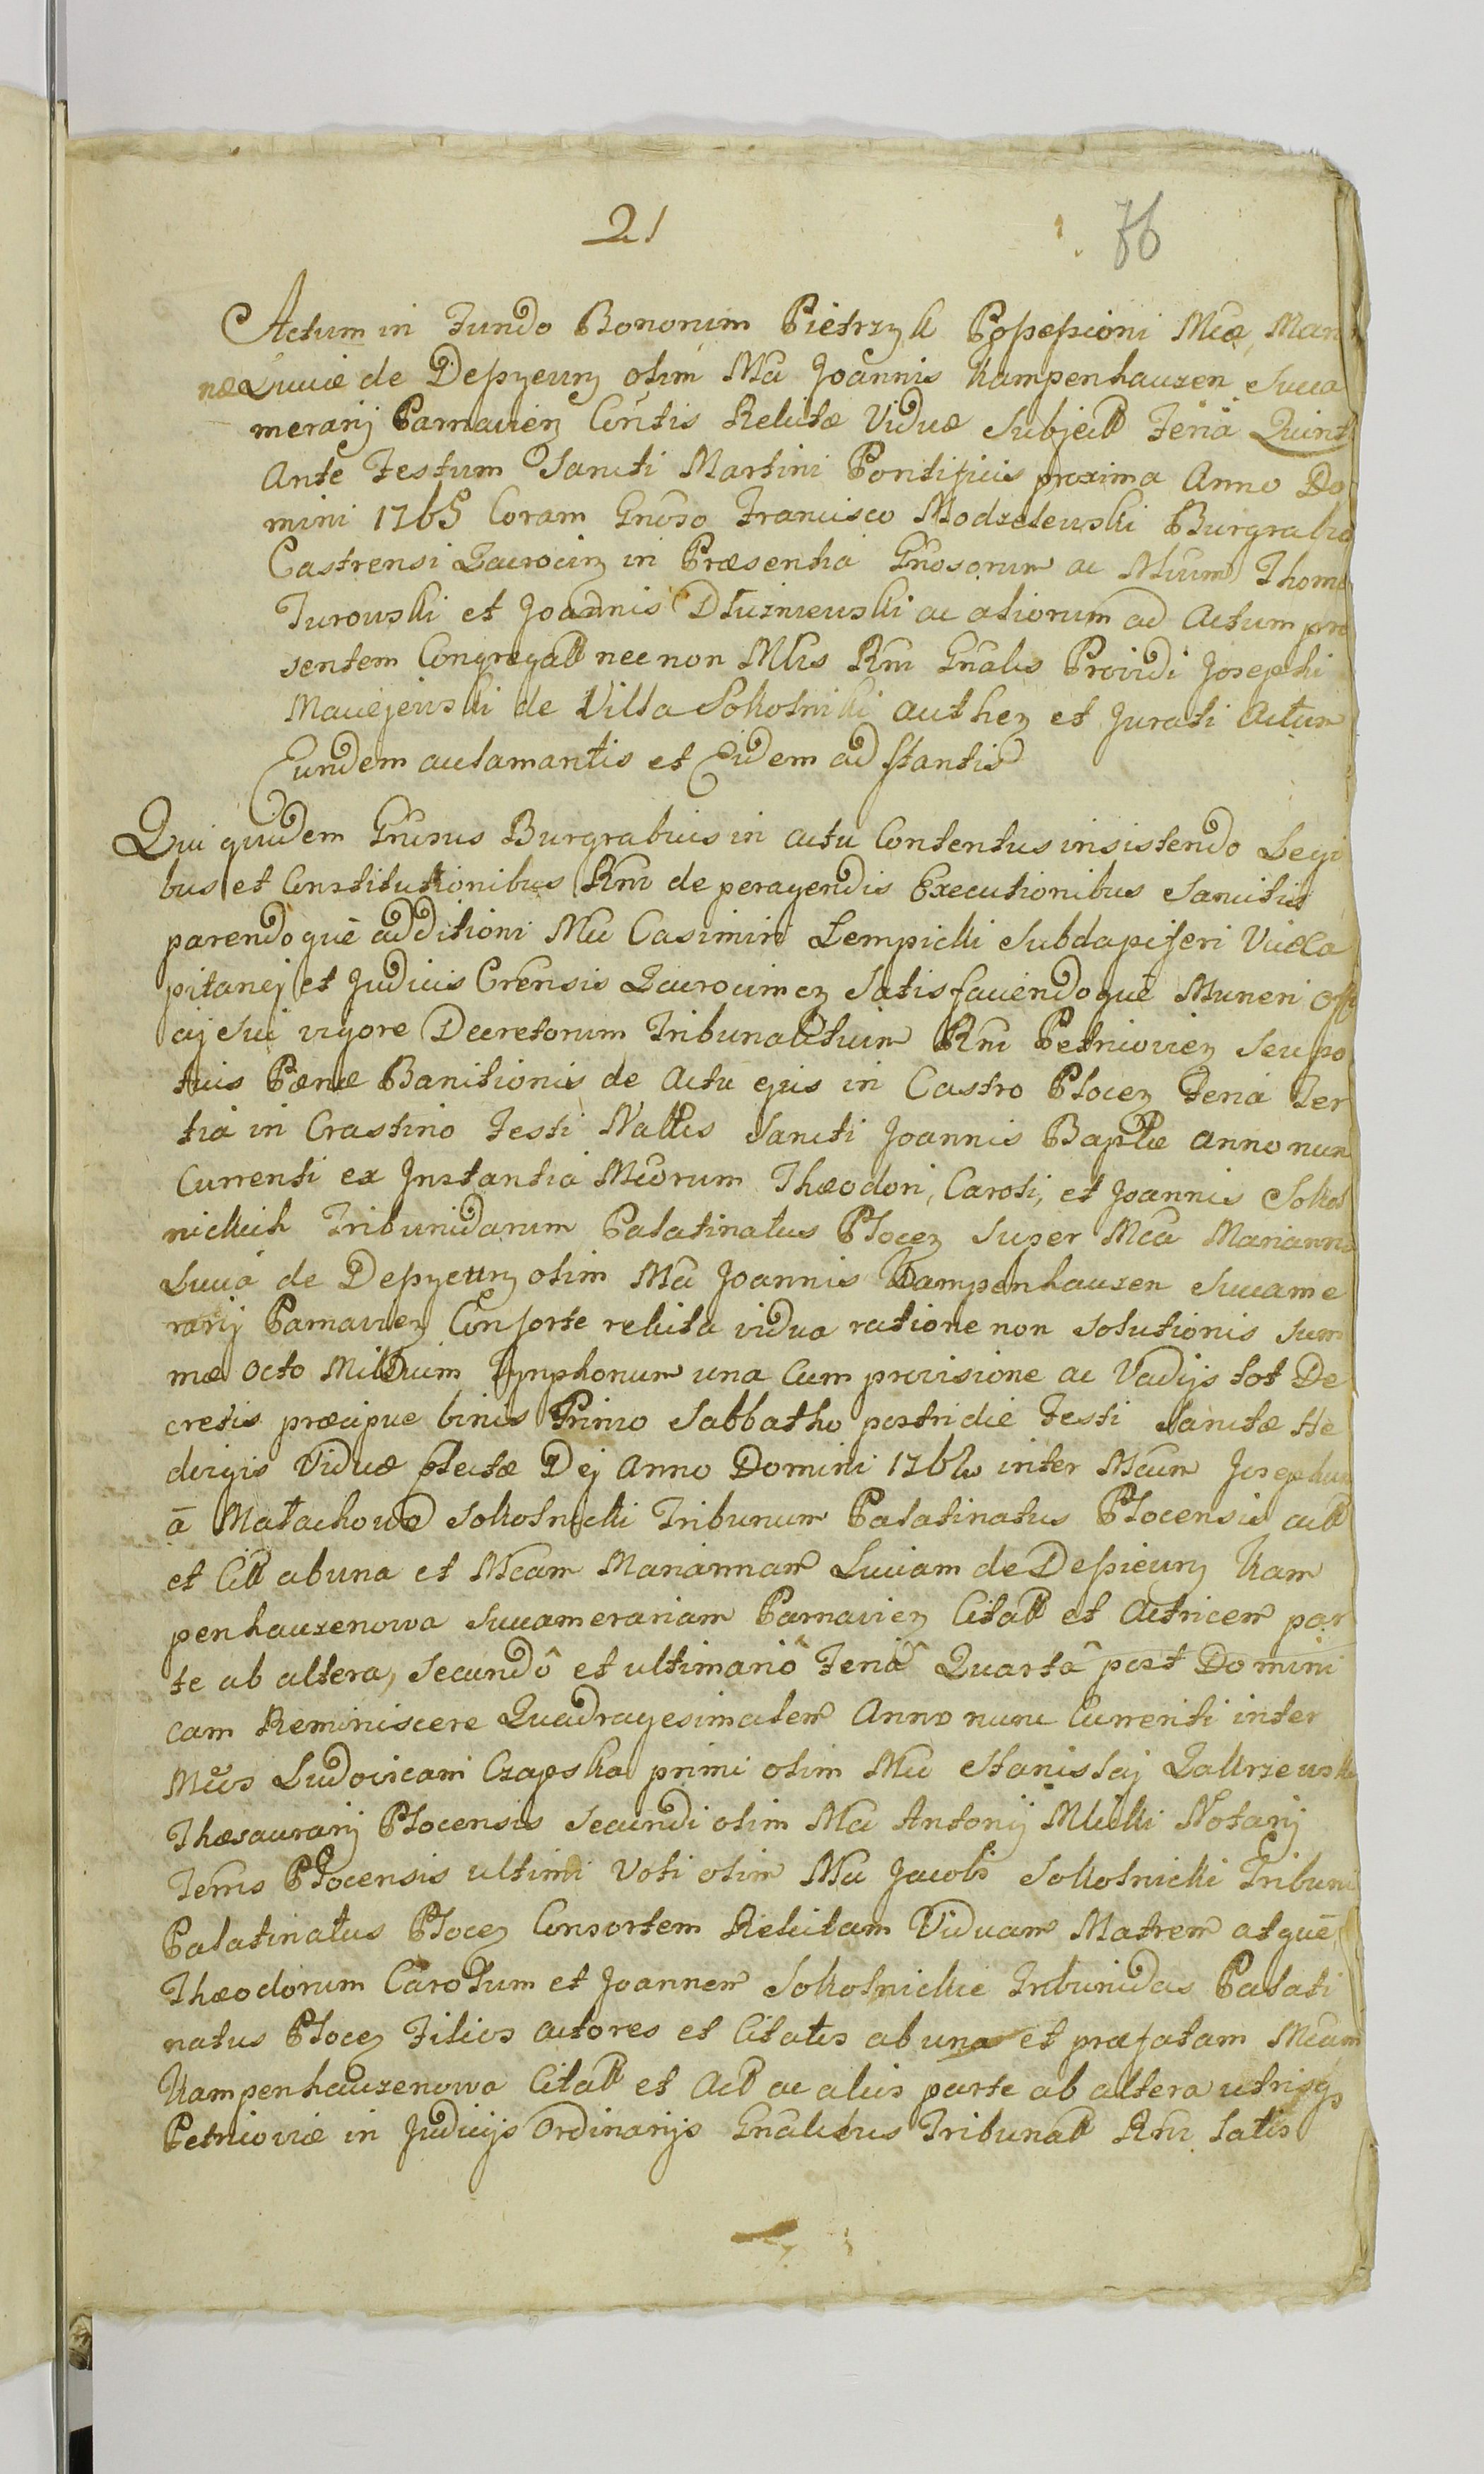 21
76
Actum in Fundo Bonorum Pietrzyk Possessioni Mcæ, Man
næ Luciæ de Depzeurz olim Mci Joannis Kampenhauzen Succa
merarij Parnavien Contis Relictæ Viduæ Subject Feriâ Quint
Ante Festum Sancti Martini Pontificis proxima Anno Do
mini 1765 Coram Gnoso Francisco Modzelewski Burgrabio
Castrensi Zacrocim in Præsentia Gnosorum ac Mcum Thoma
Turowski et Joannis Dłuzniewski ac aliorum ad Actum præ
sentem Congregall nec non Mlis Rni Gnalis Providi Josephi
Maciejewski de Villa Sokolniki authen et Jurati Actum
Eundem aclamantis et Eidem ad stantis
Qui quidem Gnosus Burgrabius in actu Contentus insistendo Legi
bus et Constitutionibus Rni de peragendis Executionibus Sancitis
parendoquè additioni Mci Casimiri Lempicki Subdapiferi Viceca
pitanej et Judicis Crensis Zacrocimen Satisfaciendoquè Muneri Offi
cij sui vigore Decretorum Tribunalitium Rni Petricovien seu po
tius Pœnæ Banitionis de Actu ejus in Castro Płocen Feria Ter
tiâ in Crastino Festi Naltis Sancti Joannis Baptæ anno nun
Currenti ex Instantia Mcorum Theodori, Caroli, et Joannis Sokol
nickich Tribunidarum Palatinatus Płocen Super Mca Marianna
Lucia de Depzeurz olim Mci Joannis Kampenhauzen Succame
rarij Parnavien Consorte relicta vidua ratione non Solutionis Sum
mæ Octo Millium Tynphonum una Cum provisione ac Vadijs tot De
cretis præcipue binis Primo Sabbatho postridie Festi Sanctæ He
dvigis Viduæ Electæ Dej Anno Domini 1762 inter Mcum Josephum
â Małachowo Sokolnicki Tribunum Palatinatus Płocensis act
et Cit ab una et Mcam Mariannam Luciam de Depieurz Kam
penhauzenowa Succamerariam Parnavien Citatt et Actricem par
te ab altera, Secundô et ultimariô Feriâ Quartâ post Domini
cam Reminiscere Quadragesimalem Anno nunc Currenti inter
Mcos Ludovicam Czapska primi olim Mci Stanislaj Zakrzewski
Thæsaurarij Płocensis Secundi olim Mci Antonij Mlicki Notarij
Terris Płocensis ultimi Voti olim Mci Jacobi Sokolnicki Tribuni
Palatinatus Płocen Consortem Relictam Viduam Matrem atquè
Theodorum Carolum et Joannem Sokolnickie Tribunidas Palati
natus Płocen Filios actores et Citatis ab una et præfatam Mcam
Kampenhauzenowa Citatt et Act ac aliis parte ab altera utrisqs
Petricoviæ in Judicijs Ordinarijs Gnalibus Tribunall Rni Latis